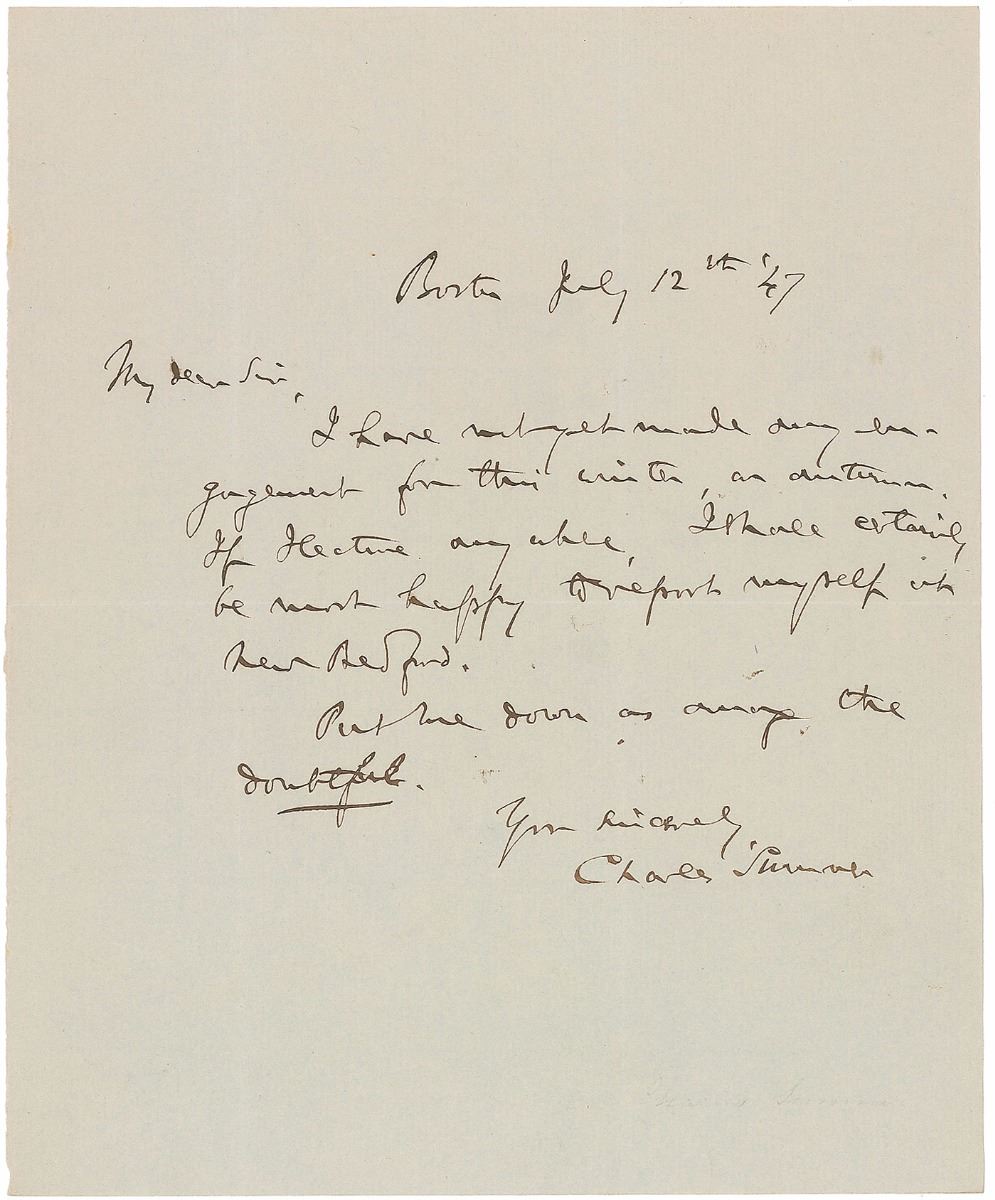 Boston July 12th '47
My dear Sir,
I have not yet made any en-
gagement for this winter, or autumn.
If I lecture any where, I shall certainly
be most happy to report myself at
New Bedford.
Put me down as among the
doubtful.
Yours sincerely,
Charles Sumner